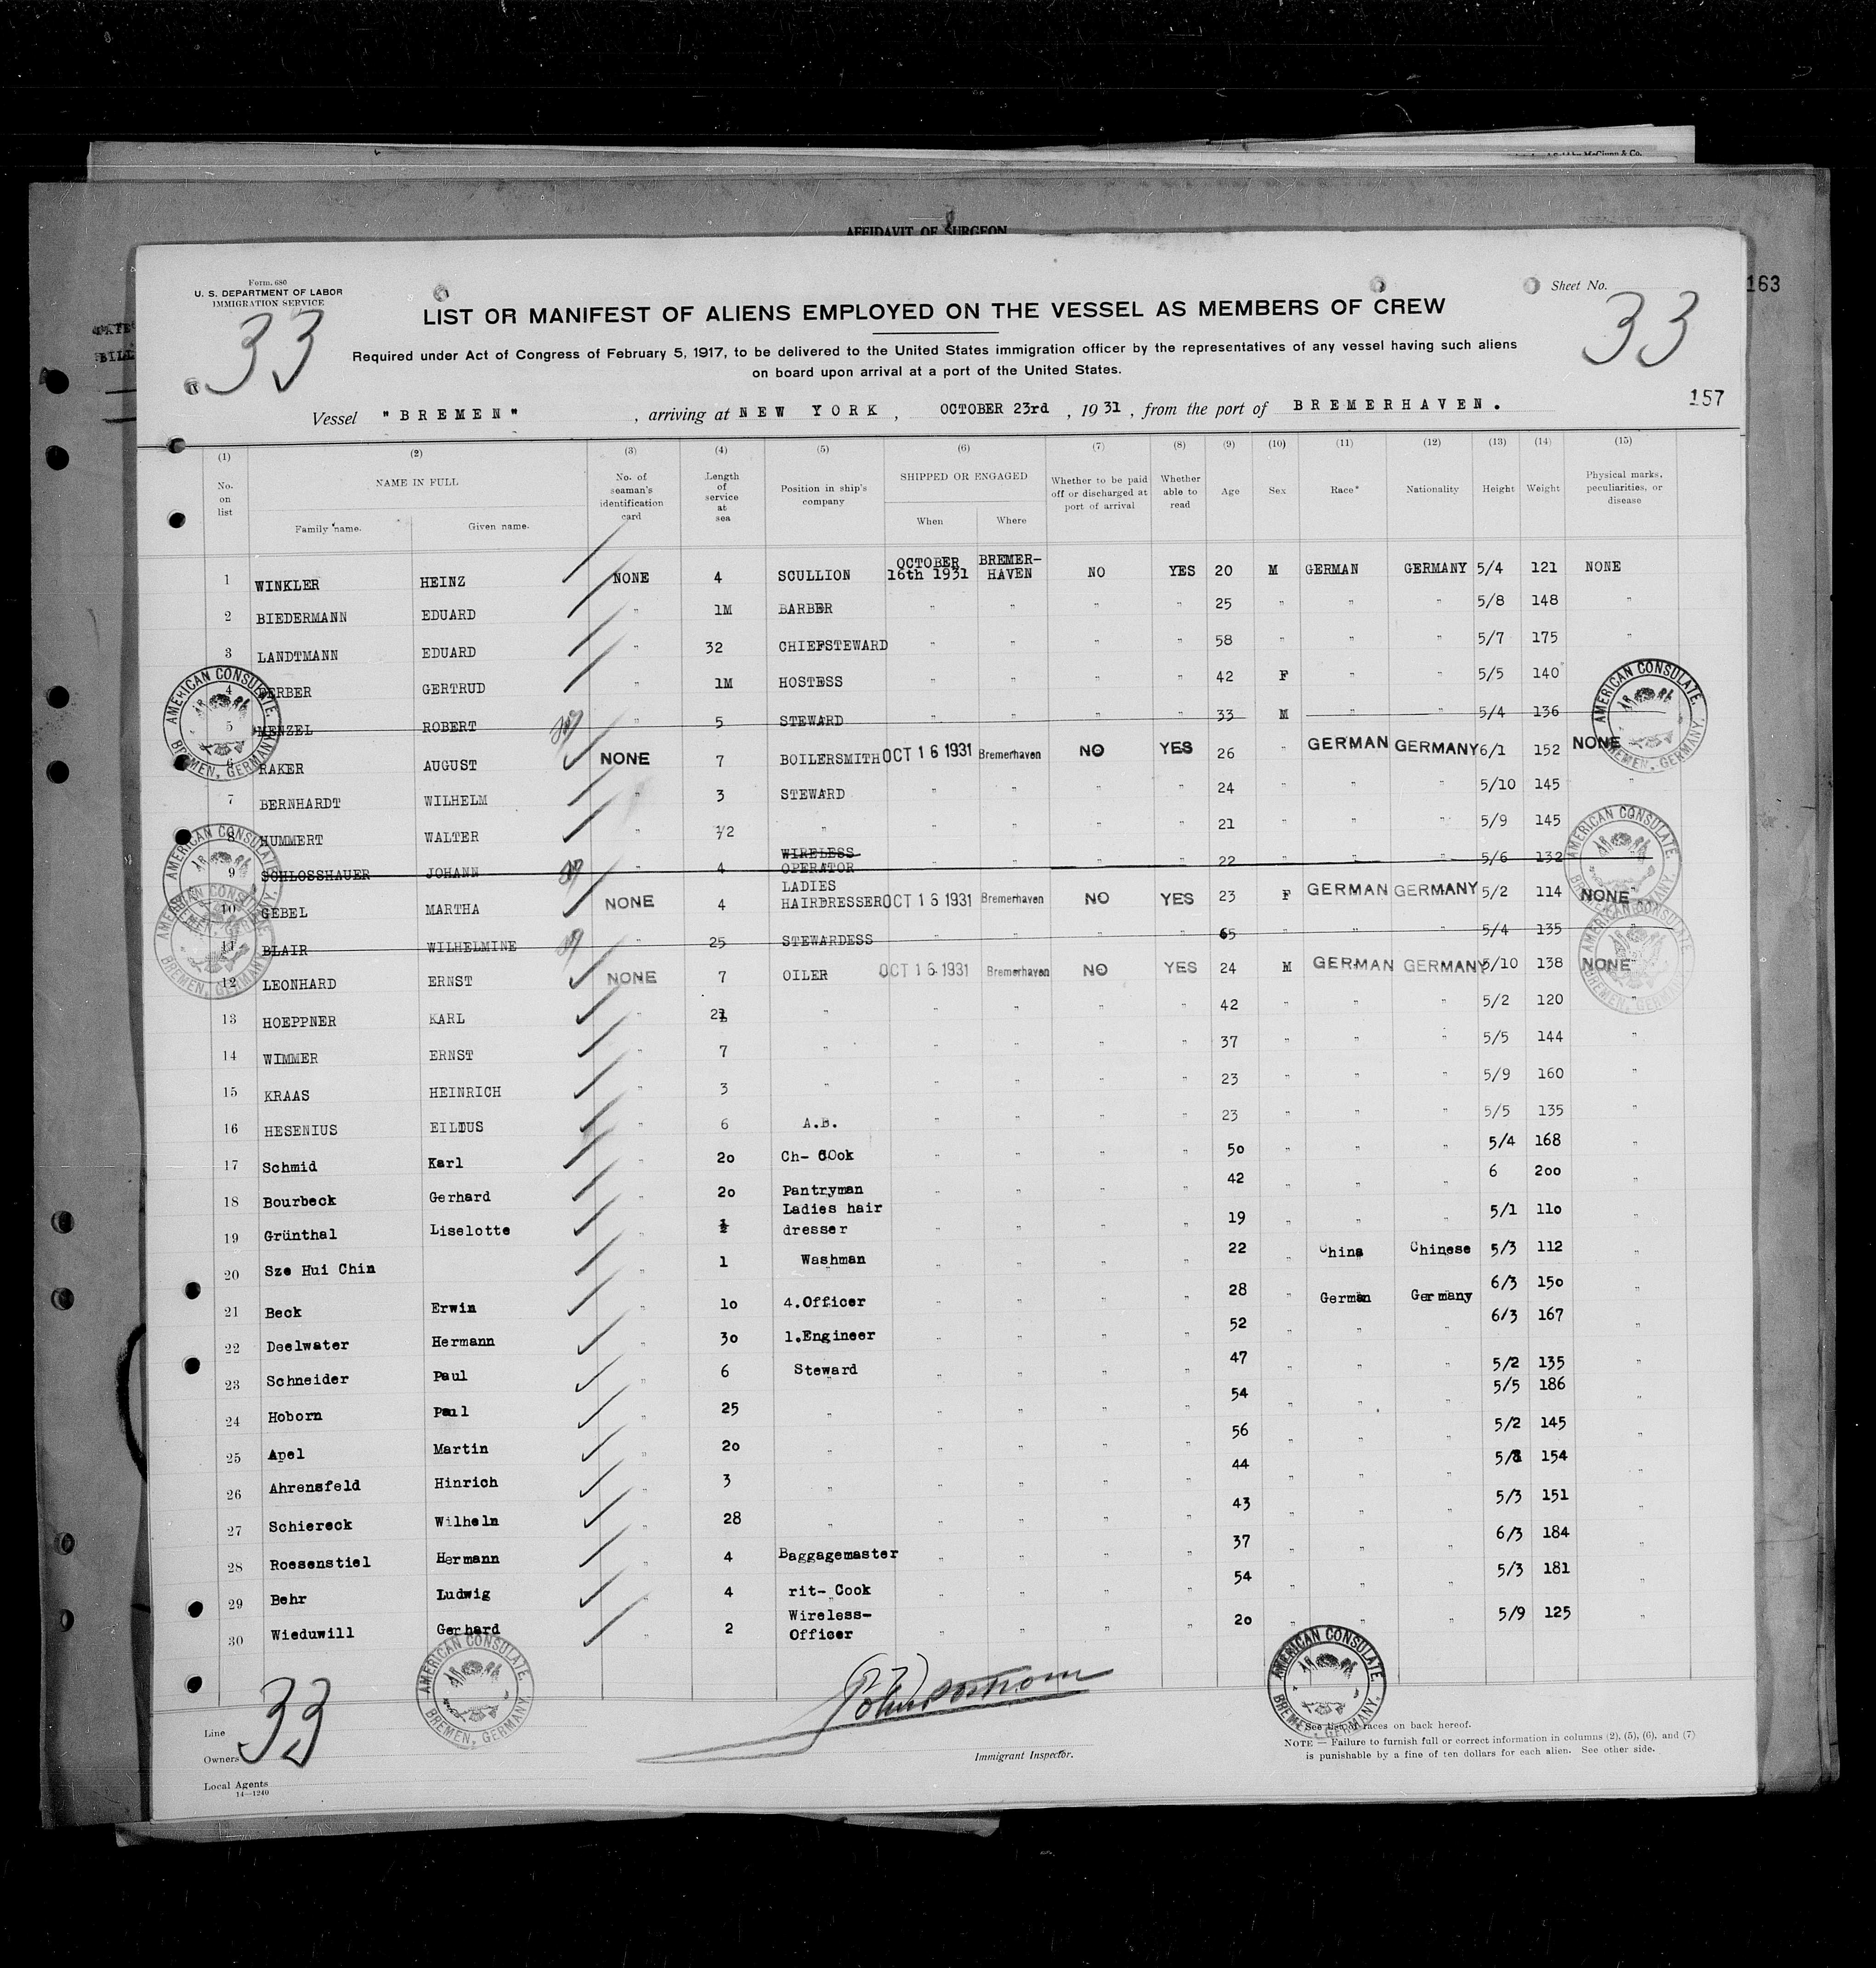 & Co.
AFFIDAVIT OF SURGEON
163
Form 680
U. S. DEPARTMENT OF LABOR
IMMIGRATION SERVICE
Sheet No.
33
33
LIST OR MANIFEST OF ALIENS EMPLOYED ON THE VESSEL AS MEMBERS OF CREW
Required under Act of Congress of February 5, 1917, to be delivered to the United States immigration officer by the representatives of any vessel having such aliens
on board upon arrival at a port of the United States.
157
Vessel "BREMEN", arriving at NEW YORK, OCTOBER 23rd, 1931, from the port of BREMERHAVEN.
(1) (2) (3) (4) (5) (6) (7) (8) (9) (10) (11) (12) (13) (14) (15)
No. on list
NAME IN FULL
Family name. Given name.
No. of seaman's identification card
Length of service at sea
Position in ship's company
SHIPPED OR ENGAGED
When Where
Whether to be paid off or discharged at port of arrival
Whether able to read
Age
Sex
Race*
Nationality
Height
Weight
Physical marks, peculiarities, or disease
1 WINKLER HEINZ NONE 4 SCULLION OCTOBER 16th 1931 BREMER-HAVEN NO YES 20 M GERMAN GERMANY 5/4 121 NONE
2 BIEDERMANN EDUARD " 1M BARBER " " " " 25 " " " 5/8 148 "
3 LANDTMANN EDUARD " 32 CHIEFSTEWARD " " " " 58 " " " 5/7 175 "
4 GERBER GERTRUD " 1M HOSTESS " " " " 42 F " " 5/5 140 "
5 MENZEL ROBERT " 5 STEWARD " " " " 33 M " " 5/4 136
6 RAKER AUGUST NONE 7 BOILERSMITH OCT 16 1931 Bremerhaven NO YES 26 " GERMAN GERMANY 6/1 152 NONE
7 BERNHARDT WILHELM " 3 STEWARD " " " " 24 " " " 5/10 145 "
8 HUMMERT WALTER " 1/2 " " " " " 21 " " " 5/9 145 "
9 SCHLOSSHAUER JOHANN " 4 WIRELESS OPERATOR " " " " 22 " " " 5/6 132 "
10 GEBEL MARTHA NONE 4 LADIES HAIRDRESSER OCT 16 1931 Bremerhaven NO YES 23 F GERMAN GERMANY 5/2 114 NONE
11 BLAIR WILHELMINE 25 STEWARDESS " " " " 65 " " " 5/4 135 "
12 LEONHARD ERNST NONE 7 OILER OCT 16 1931 Bremerhaven NO YES 24 M GERMAN GERMANY 5/10 138 NONE
13 HOEPPNER KARL " " " " " " 42 " " " 5/2 120 "
14 WIMMER ERNST " 7 " " " " " 37 " " " 5/5 144 "
15 KRAAS HEINRICH " 3 " " " " " 23 " " " 5/9 160 "
16 HESENIUS EILDUS " 6 A.B. " " " " 23 " " " 5/5 135 "
17 Schmid Karl " 20 Ch- COok " " " " 50 " " " 5/4 168 "
18 Bourbeck Gerhard " 20 Pantryman " " " " 42 " " " 6 200 "
19 Grünthal Liselotte " 1/2 Ladies hair dresser " " " " 19 " " " 5/1 110 "
20 Sze Hui Chin " 1 Washman " " " " 22 " China Chinese 5/3 112 "
21 Beck Erwin " 10 4.Officer " " " " 28 " German Germany 6/3 150 "
22 Deelwater Hermann " 30 1.Engineer " " " " 52 " " " 6/3 167 "
23 Schneider Paul " 6 Steward " " " " 47 " " " 5/2 135 "
24 Hoborn Paul " 25 " " " " " 54 " " " 5/5 186 "
25 Apel Martin " 20 " " " " " 56 " " " 5/2 145 "
26 Ahrensfeld Hinrich " 3 " " " " " 44 " " " 154 "
27 Schiereck Wilheln " 28 " " " " " 43 " " " 5/3 151 "
28 Roesenstiel Hermann " 4 Baggagemaster " " " " 37 " " " 6/3 184 "
29 Behr Ludwig " 4 rit- Cook " " " " 54 " " " 5/3 181 "
30 Wieduwill Gerhard " 2 Wireless-Officer " " " " 20 " " " 5/9 125 "
AMERICAN CONSULATE. BREMEN, GERMANY.
AMERICAN CONSULATE. BREMEN, GERMANY.
AMERICAN CONSULATE. BREMEN, GERMANY.
AMERICAN CONSULATE. BREMEN, GERMANY.
AMERICAN CONSULATE. BREMEN, GERMANY.
AMERICAN CONSULATE. BREMEN, GERMANY.
AMERICAN CONSULATE. BREMEN, GERMANY.
AMERICAN CONSULATE. BREMEN, GERMANY.
33
Line
Owners
Local Agents
14—1240
Immigrant Inspector.
See list of races on back hereof.
NOTE — Failure to furnish full or correct information in columns (2), (5), (6), and (7)
is punishable by a fine of ten dollars for each alien. See other side.